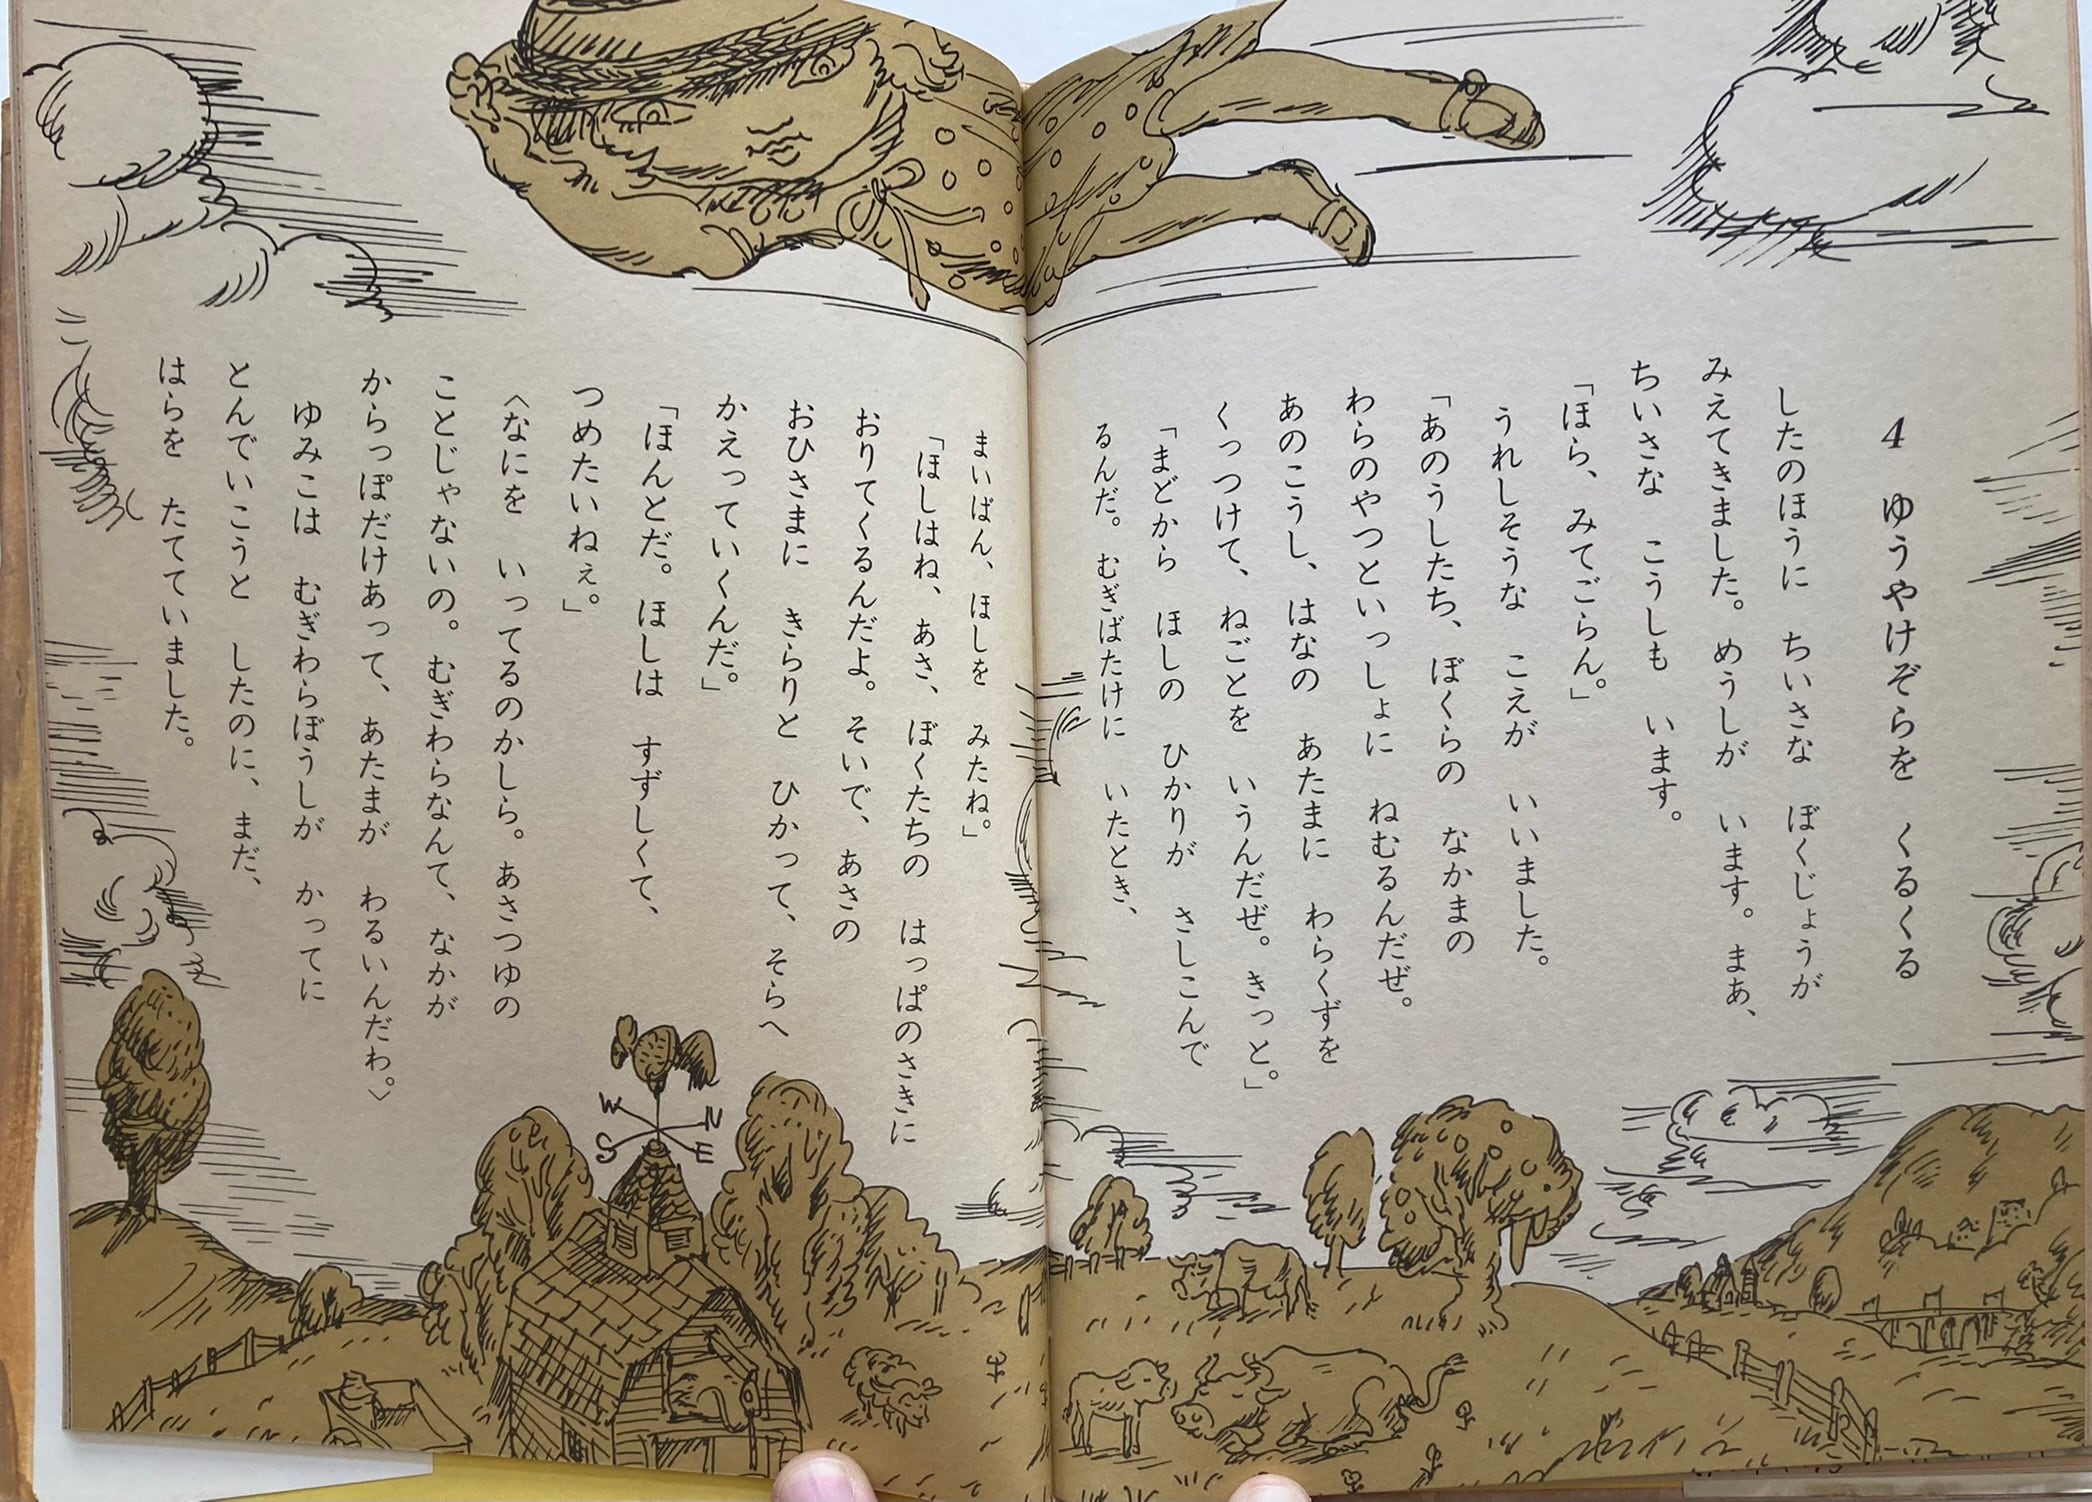 4 ゆうやけぞらを くるくる
したのほうに ちいさな ぼくじょうが
みえてきました。めうしが います。まあ、
ちいさな こうしも います。
「ほら、みてごらん。」
うれしそうな こえが いいました。
「あのうしたち、ぼくらの なかまの
わらのやつといっしょに ねむるんだぜ。
あのこうし、はなの あたまに わらくずを
くっつけて、ねごとを いうんだぜ。きっと。」
「まどから ほしの ひかりが さしこんで
るんだ。むぎばたけに いたとき、
まいばん、ほしを みたね。」
「ほしはね、あさ、ぼくたちの はっぱのさきに
おりてくるんだよ。そいで、あさの
おひさまに きらりと ひかって、そらへ
かえっていくんだ。」
「ほんとだ。ほしは すずしくて、
つめたいねぇ。」
〈なにを いってるのかしら。あさつゆの
ことじゃないの。むぎわらなんて、なかが
からっぽだけあって、あたまが わるいんだわ。〉
ゆみこは むぎわらぼうしが かってに
とんでいこうと したのに、まだ、
はらを たてていました。
W
N
S
E